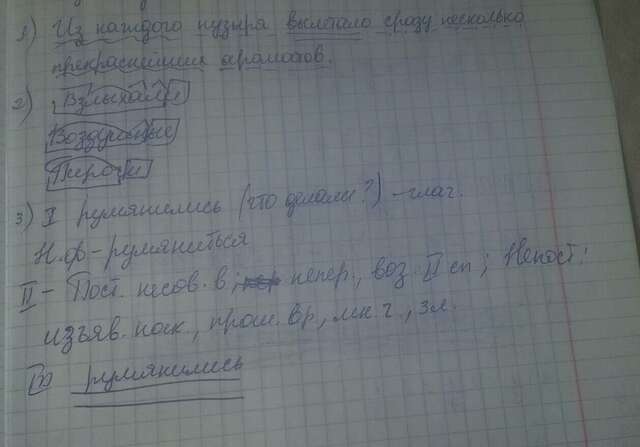 1) Из каждого пузыря вылетало сразу несколько
прекраснейших ароматов.
2) Вздыхали
Воздушные
Пироги
3) I румянились (что делали?) - глаг.
Н.ф - румяниться
II - Пост. несов. в., непер., воз. II сп; Непост:
изъяв. накл., прош. вр, мн. ч., 3 л.
III румянились